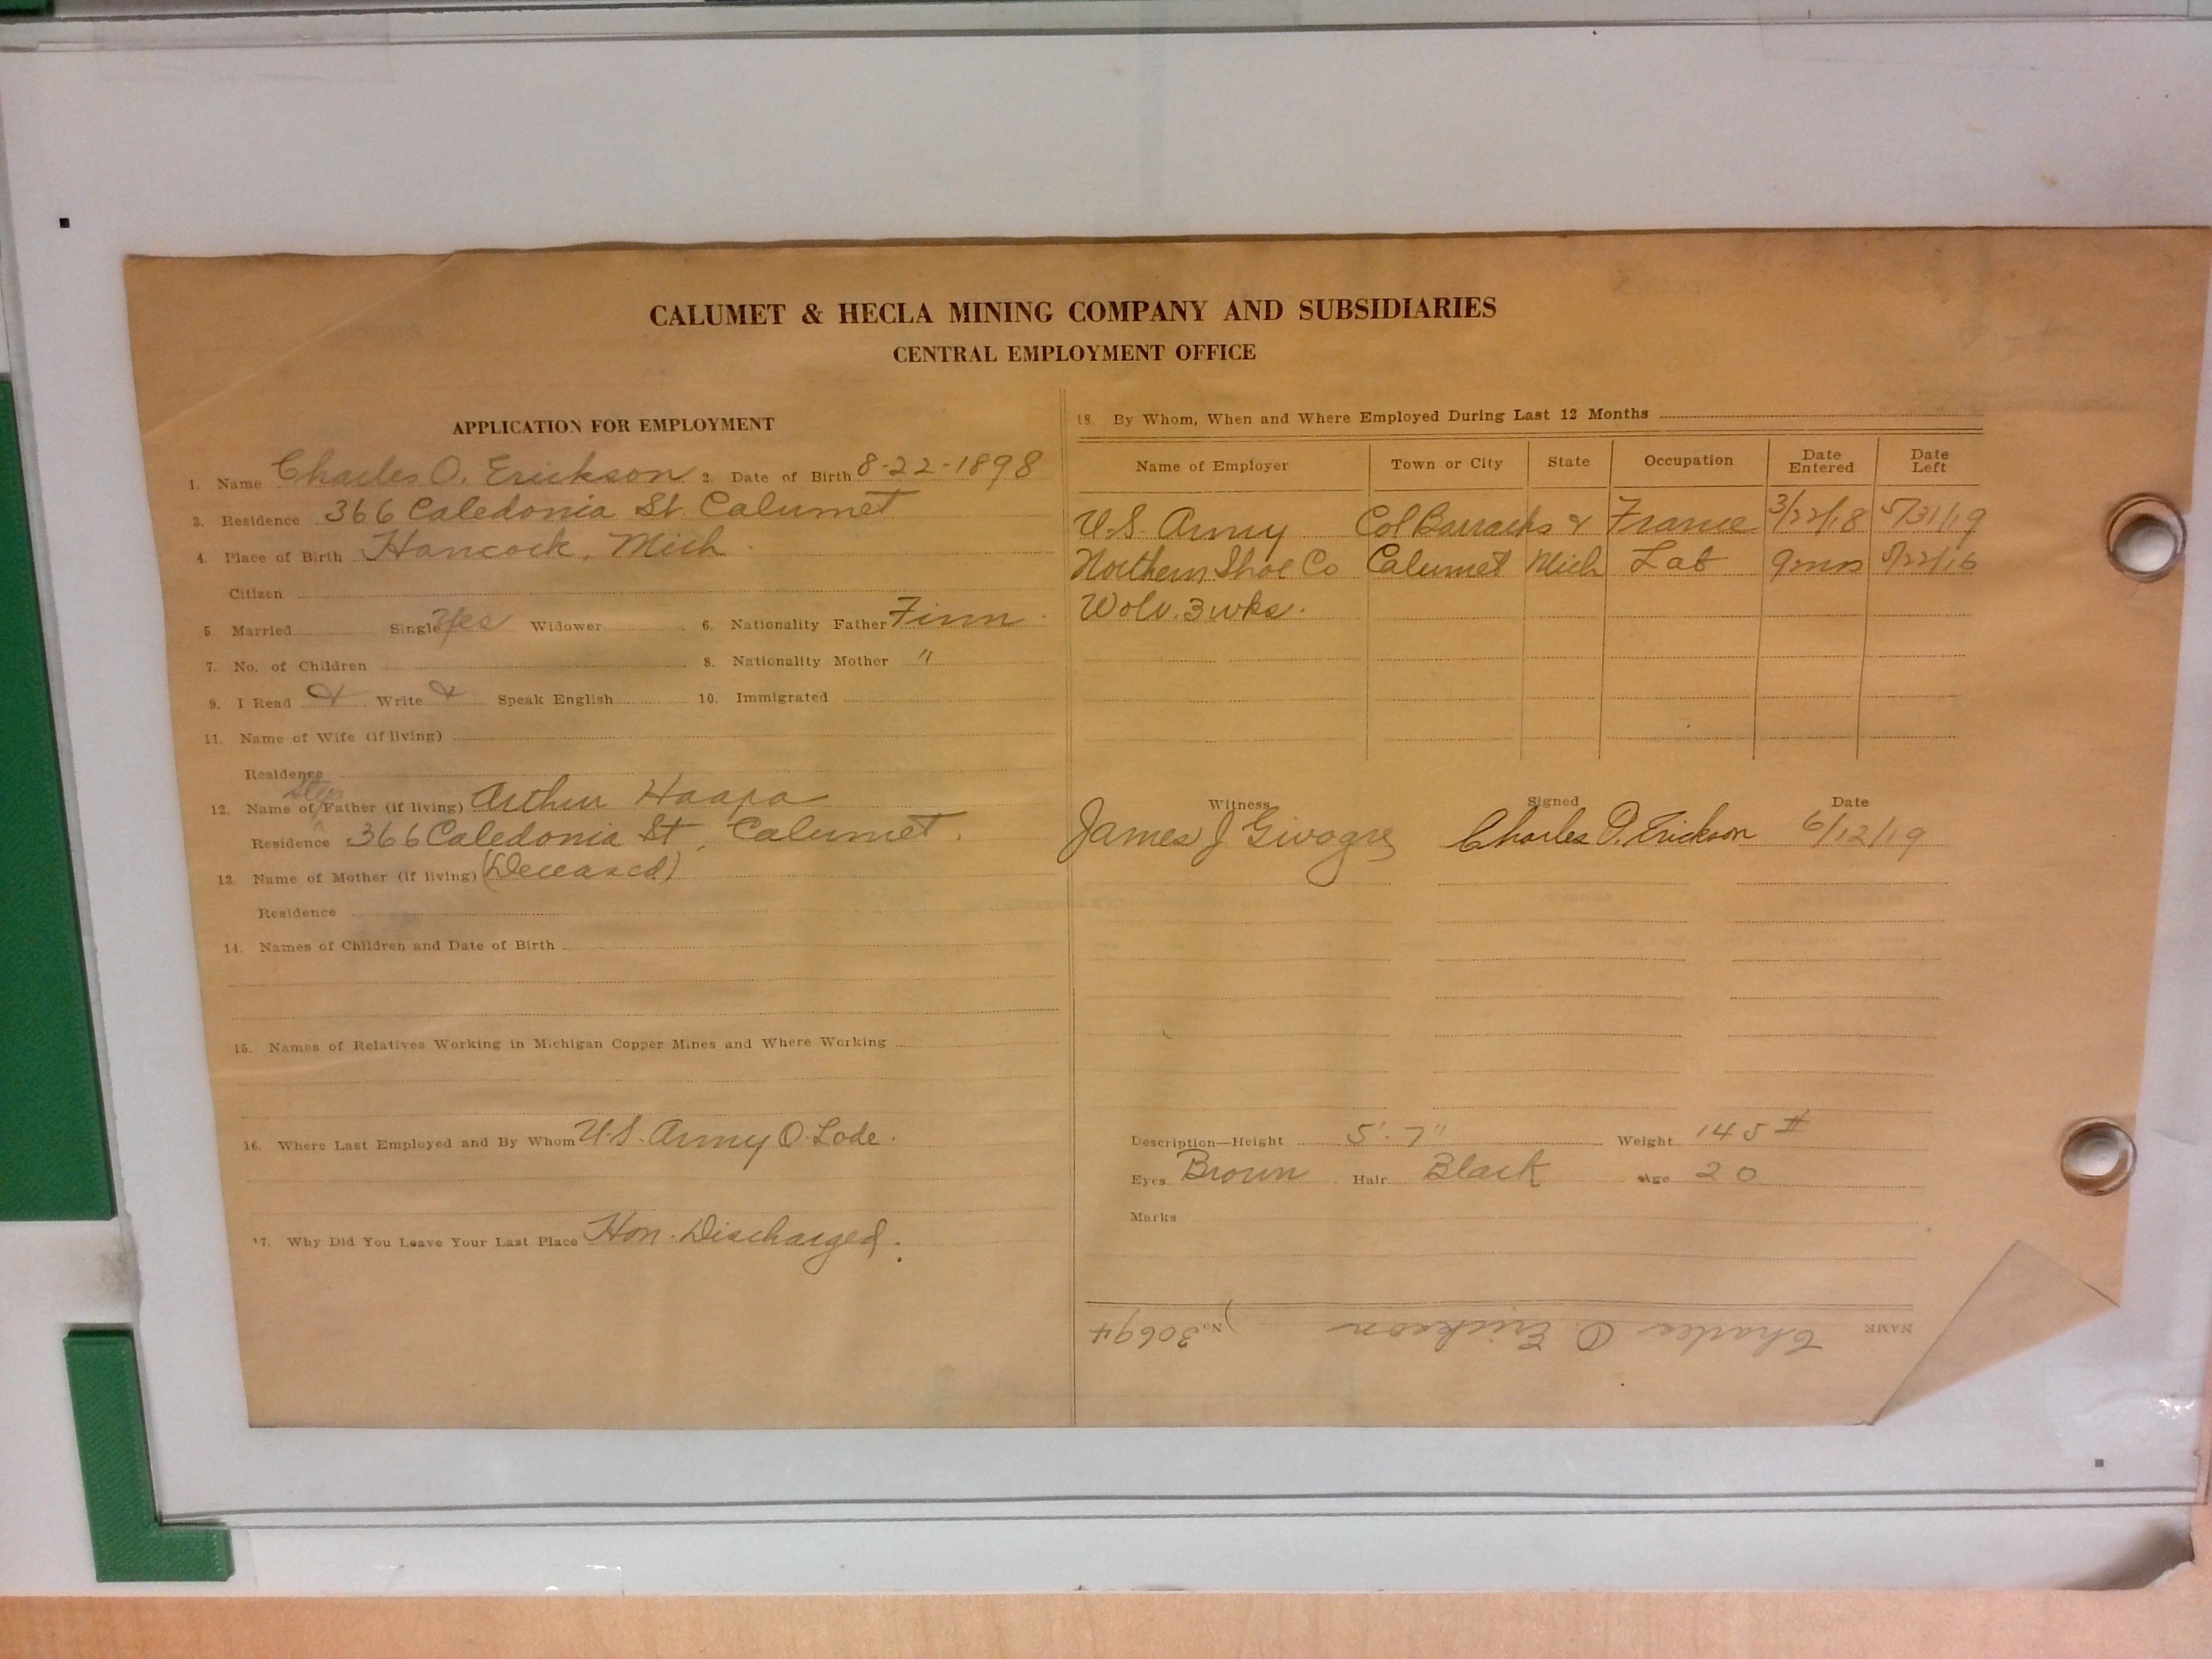 CALUMET & HECLA MINING COMPANY AND SUBSIDIARIES
CENTRAL EMPLOYMENT OFFICE
APPLICATION FOR EMPLOYMENT
1. Name Charles O. Erickson 2. Date of Birth 8-22-1898
3. Residence 366 Caledonia St Calumet
4. Place of Birth Hancock, Mich
Citizen
5. Married Single Yes Widower 6. Nationality Father Finn
7. No. of Children 8. Nationality Mother "
9. I Read & Write & Speak English 10. Immigrated
11. Name of Wife (if living)
Residence
12. Name of Step Father (if living) Arthur Haapa
Residence 366 Caledonia St, Calumet.
13. Name of Mother (if living) (Deceased)
Residence
14. Names of Children and Date of Birth
15. Names of Relatives Working in Michigan Copper Mines and Where Working
16. Where Last Employed and By Whom U.S. Army O. Lode.
17. Why Did You Leave Your Last Place Hon. Discharged.
18. By Whom, When and Where Employed During Last 12 Months
Name of Employer Town or City State Occupation Date Entered Date Left
U.S. Army Col Barracks & France 3/22/18 5/31/19
Northern Shoe Co Calumet Mich Lab 9mos 5/22/16
Wolv. 3 wks.
Witness Signed Date
James J Givogre Charles O. Erickson 6/12/19
Description—Height 5'-7" Weight 145#
Eyes Brown Hair Black Age 20
Marks
NAME Charles O. Erickson No. 30694